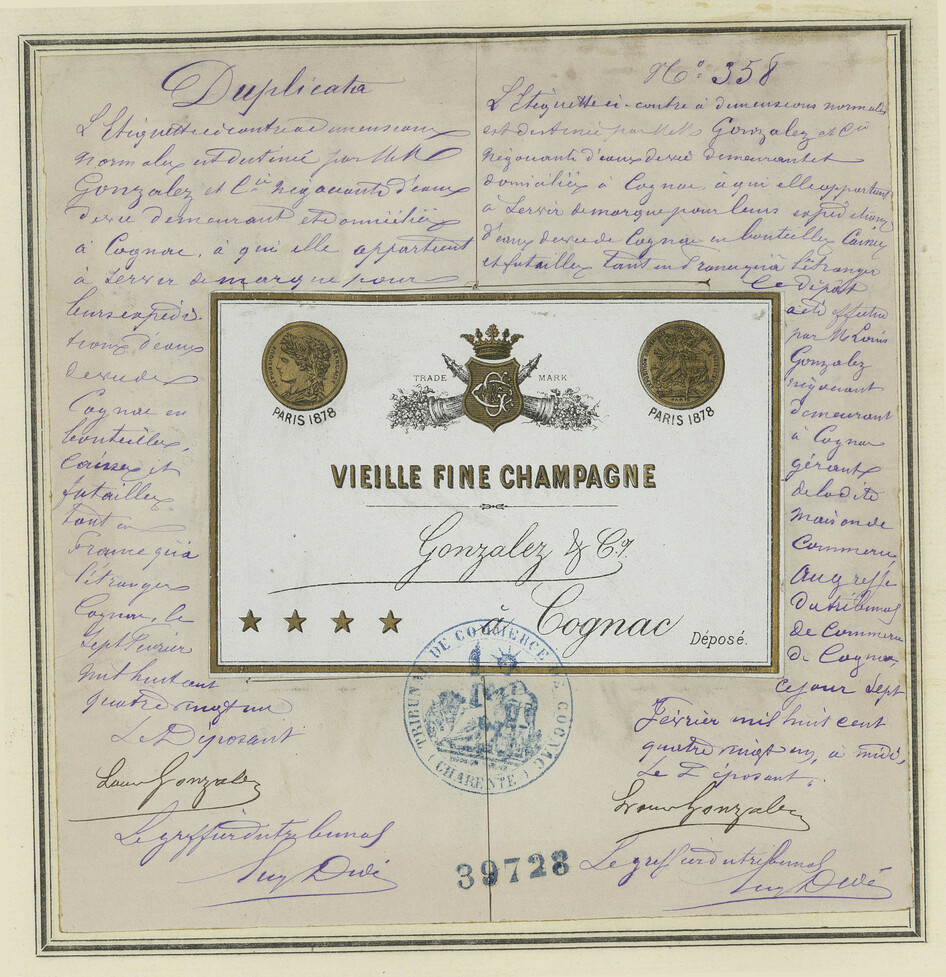 Duplicata
L'Etiquette ci contre de dimensions
normales est destinée par MM
Gonzalez et Cie Négociants d'eaux
de vie demeurant et domiciliés
à Cognac, à qui elle appartient
à servir de marque pour
leurs expédi-
tions d'eaux
de vie de
Cognac en
bouteilles,
caisses et
futailles
tant en
France qu'à
l'étranger
Cognac, le
Sept Février
mil huit cent
quatre vingt un
Le Déposant
Louis Gonzalez
Le greffier du tribunal
N° 358
L'Etiquette ci-contre à dimensions normales
est destinée par MM Gonzalez et Cie
Négociants d'eaux de vie demeurant et
domiciliés à Cognac, à qui elle appartient
à servir de marque pour leurs expéditions
d'eaux de vie de Cognac en bouteilles, Caisses
et futailles tant en France qu'à l'étranger
Ce dépôt
a été effectué
par M Louis
Gonzalez
négociant
demeurant
à Cognac
gérant
de la dite
maison de
Commerce
au greffe
du tribunal
de Commerce
de Cognac
ce jour Sept
Février mil huit cent
quatre vingt un, à midi,
Le Déposant
Louis Gonzalez
Le greffier du tribunal
PARIS 1878
TRADE MARK
PARIS 1878
VIEILLE FINE CHAMPAGNE
Gonzalez & Co.
à Cognac
Déposé.
TRIBUNAL DE COMMERCE DE COGNAC
(CHARENTE)
39728